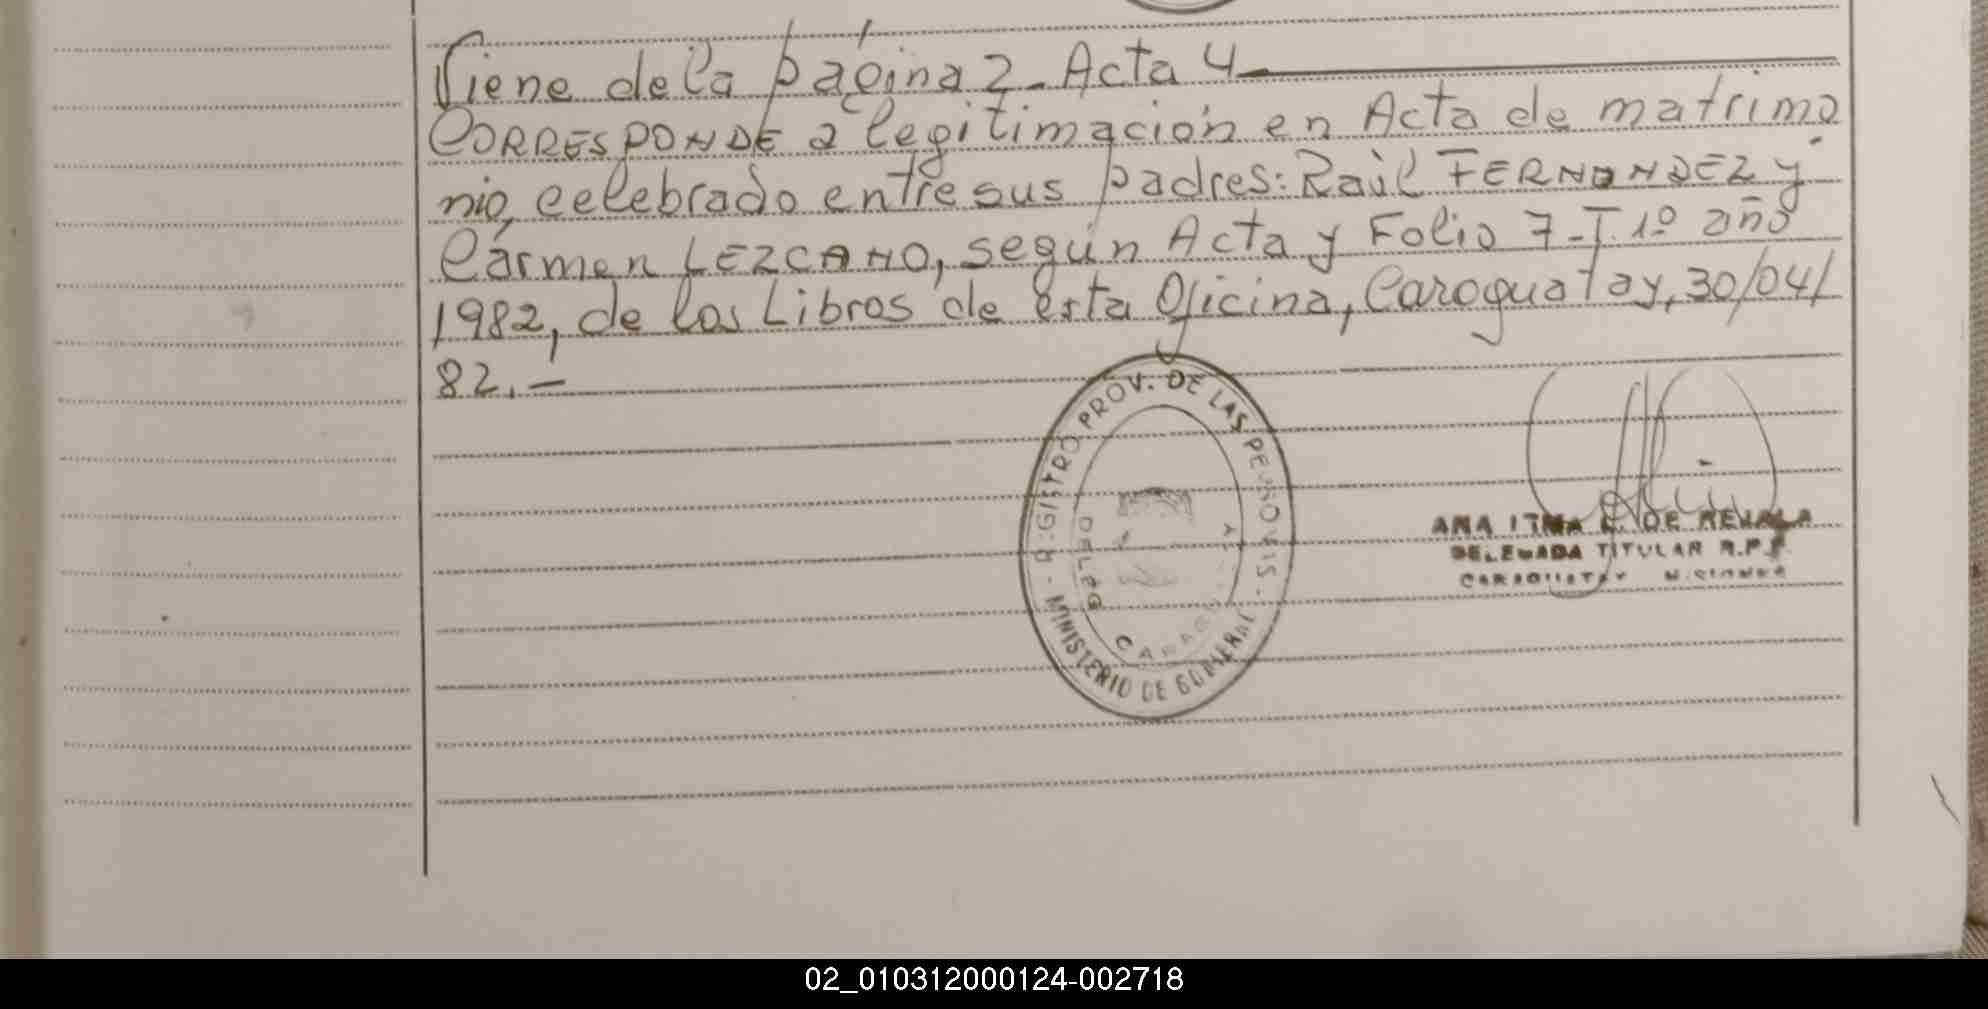 Viene de la página 2 - Acta 4
CORRESPONDE a legitimación en Acta de matrimo
nio, celebrado entre sus padres: Raúl FERNANDEZ y
Cármen LEZCANO, según Acta y Folio 7 - T. 1º año
1982, de los Libros de esta Oficina, Caraguatay, 30/04/
82.-
REGISTRO PROV. DE LAS PERSONAS -
MINISTERIO DE GOBIERNO
DELEG
ANA DE
DELEGADA TITULAR R.P.P.
CARAGUATAY MISIONES
02_010312000124-002718